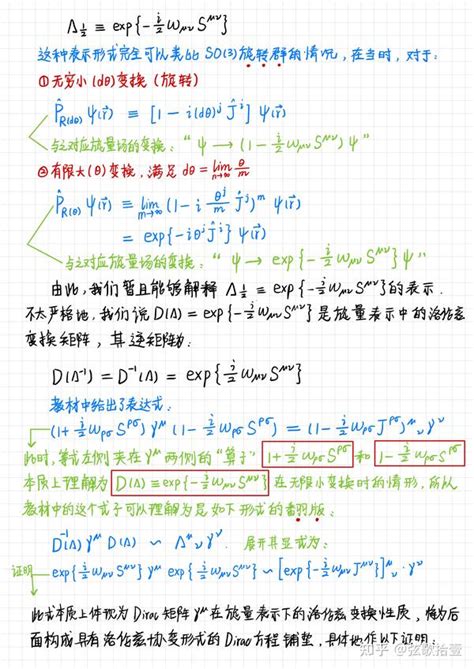 Λ_{1/2} ≡ exp{-i/2 ω_{μν} S^{μν}}
这种表示形式完全可以类比 SO(3)旋转群的情况，在当时，对于：
①无穷小(dθ)变换（旋转）
P̂_{R(dθ)} ψ(r⃗) ≡ [1 - i(dθ)^j Ĵ^j] ψ(r⃗)
与之对应旋量场的变换："ψ → (1 - i/2 ω_{μν} S^{μν}) ψ"
②有限大(θ)变换，满足 dθ = lim_{m→∞} θ/m
P̂_{R(θ)} ψ(r⃗) ≡ lim_{m→∞} (1 - i θ^j/m Ĵ^j)^m ψ(r⃗)
= exp{-iθ^j Ĵ^j} ψ(r⃗)
与之对应旋量场的变换："ψ → exp{-i/2 ω_{μν} S^{μν}} ψ"
由此，我们暂且能够解释 Λ_{1/2} ≡ exp{-i/2 ω_{μν} S^{μν}}的表示.
不太严格地，我们说 D(Λ) = exp{-i/2 ω_{μν} S^{μν}} 是旋量表示中的洛伦兹
变换矩阵，其逆矩阵为：
D(Λ^{-1}) = D^{-1}(Λ) = exp{i/2 ω_{μν} S^{μν}}
教材中给出了表达式：
(1 + i/2 ω_{ρσ} S^{ρσ}) γ^μ (1 - i/2 ω_{ρσ} S^{ρσ}) = (1 - i/2 ω_{ρσ} J^{ρσ})^μ_ν γ^ν
此时，等式左侧夹在γ^μ 两侧的"算子" 1 + i/2 ω_{ρσ} S^{ρσ} 和 1 - i/2 ω_{ρσ} S^{ρσ}
本质上理解为 D(Λ) ≡ exp{-i/2 ω_{μν} S^{μν}} 在无限小变换时的情形，所以
教材中的这个式子可以理解为是如下形式的青羽版：
D^{-1}(Λ) γ^μ D(Λ) ~ Λ^μ_ν γ^ν. 展开其显式为：
证明 exp{i/2 ω_{μν} S^{μν}} γ^μ exp{-i/2 ω_{μν} S^{μν}} ~ [exp{-i/2 ω_{μν} J^{μν}}]^μ_ν · γ^ν
此式本质上体现为 Dirac 矩阵 γ^μ 在旋量表示下的洛伦兹变换性质，将为后
面构成具有洛伦兹协变形式的 Dirac方程 铺垫，具体地作以下证明：
知乎 @弦歌拾壹